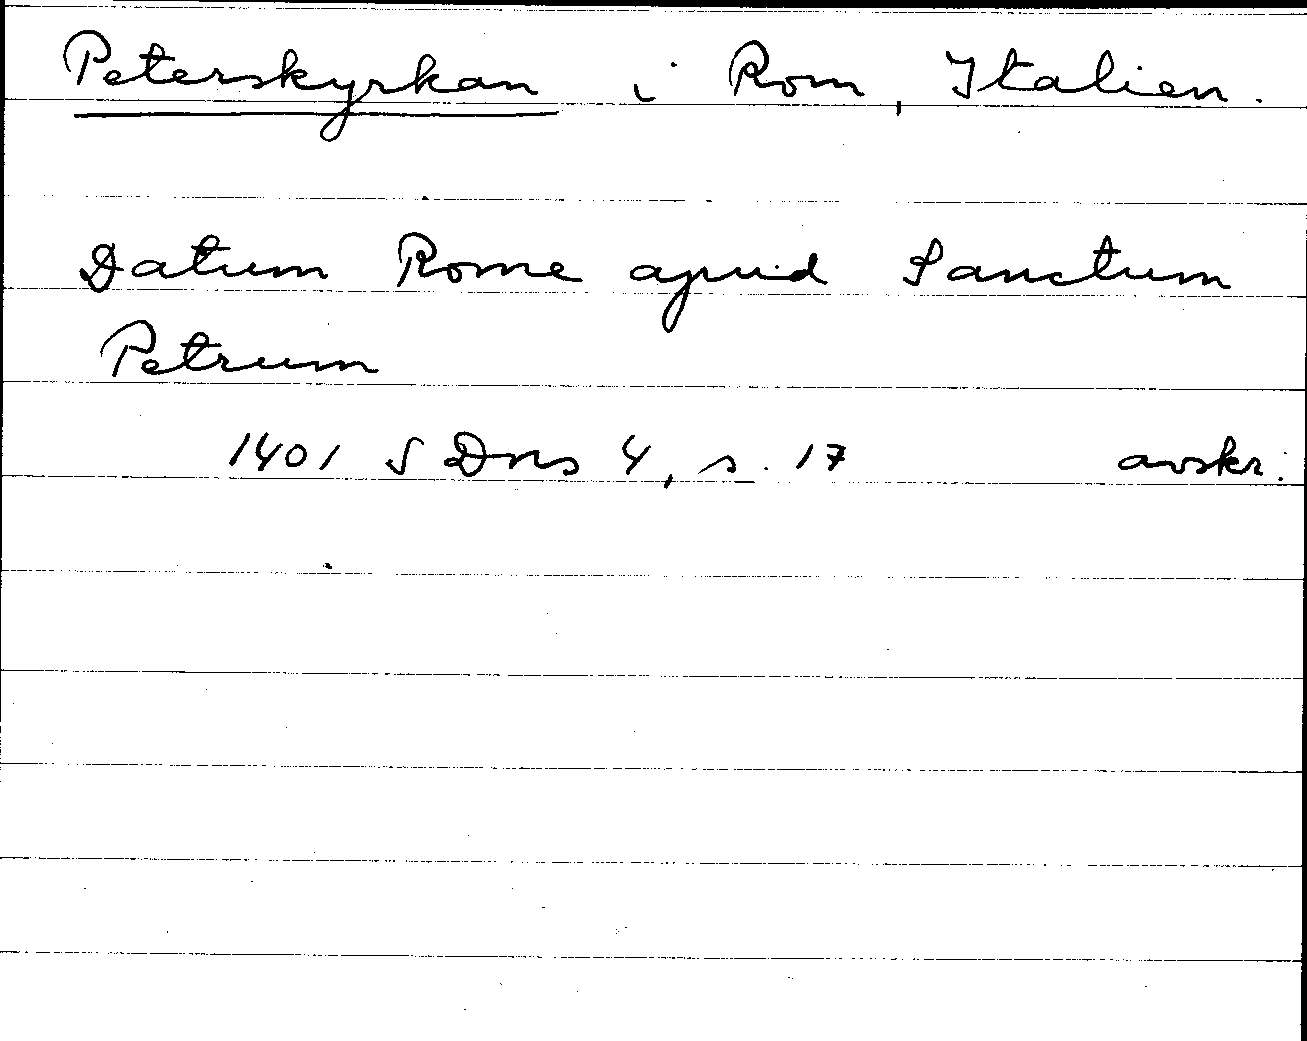 Peterskyrkan i Rom, Italien.
Datum Rome apud Sanctum
Petrum
1401 S Dns 4, s. 17 avskr.